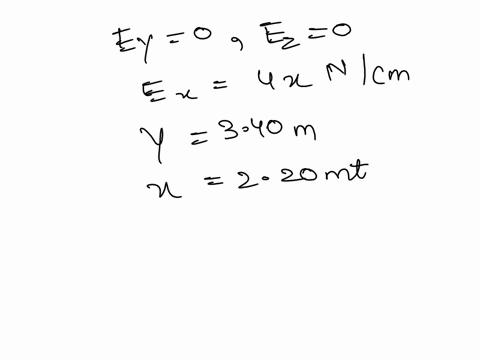 Ey = 0, Ez = 0
Ex = 4x N/cm
Y = 3.40 m
x = 2.20 mt